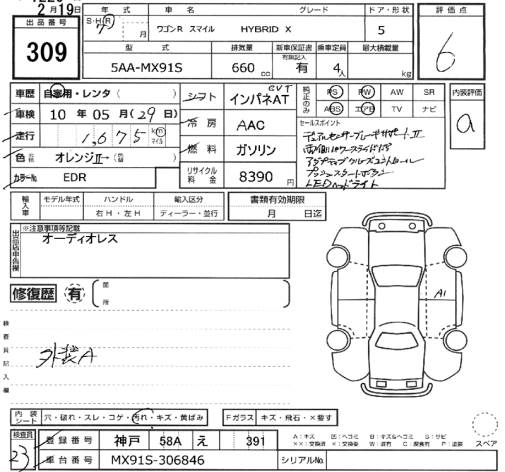 2月19日
出品番号
309
年式 車名 グレード ドア・形状 評価点
S・H・R 7 月 ワゴンR スマイル HYBRID X 5 6
型式 排気量 新車保証書 乗車定員 最大積載量
5AA-MX91S 660 cc 有 4人 kg
車歴 自家用・レンタ ( )
シフト CVT インパネAT
PS PW AW SR
ABS エアB TV ナビ
内装評価
a
車検 10年05月(29日)
冷房 AAC
セールスポイント
デュアルセンサーブレーキサポートⅡ
両側パワースライドドア
アダプティブクルーズコントロール
プッシュスタートボタン
LEDヘッドライト
走行 1,675 km マイル
燃料 ガソリン
色 オレンジⅡ
リサイクル料金 8390円
カラーNo. EDR
輸入車 モデル年式 ハンドル 輸入区分 書類有効期限
右H・左H ディーラー・並行 月 日迄
※注意事項等記載
オーディオレス
修復歴 有
箇所
A1
検査員記入欄
外装A
内装シート 穴・破れ・スレ・コゲ・汚れ・キズ・黄ばみ Fガラス キズ・飛石・×要す
検査員
23
登録番号 神戸 58A え 391
車台番号 MX91S-306846 シリアルNo.
スペア